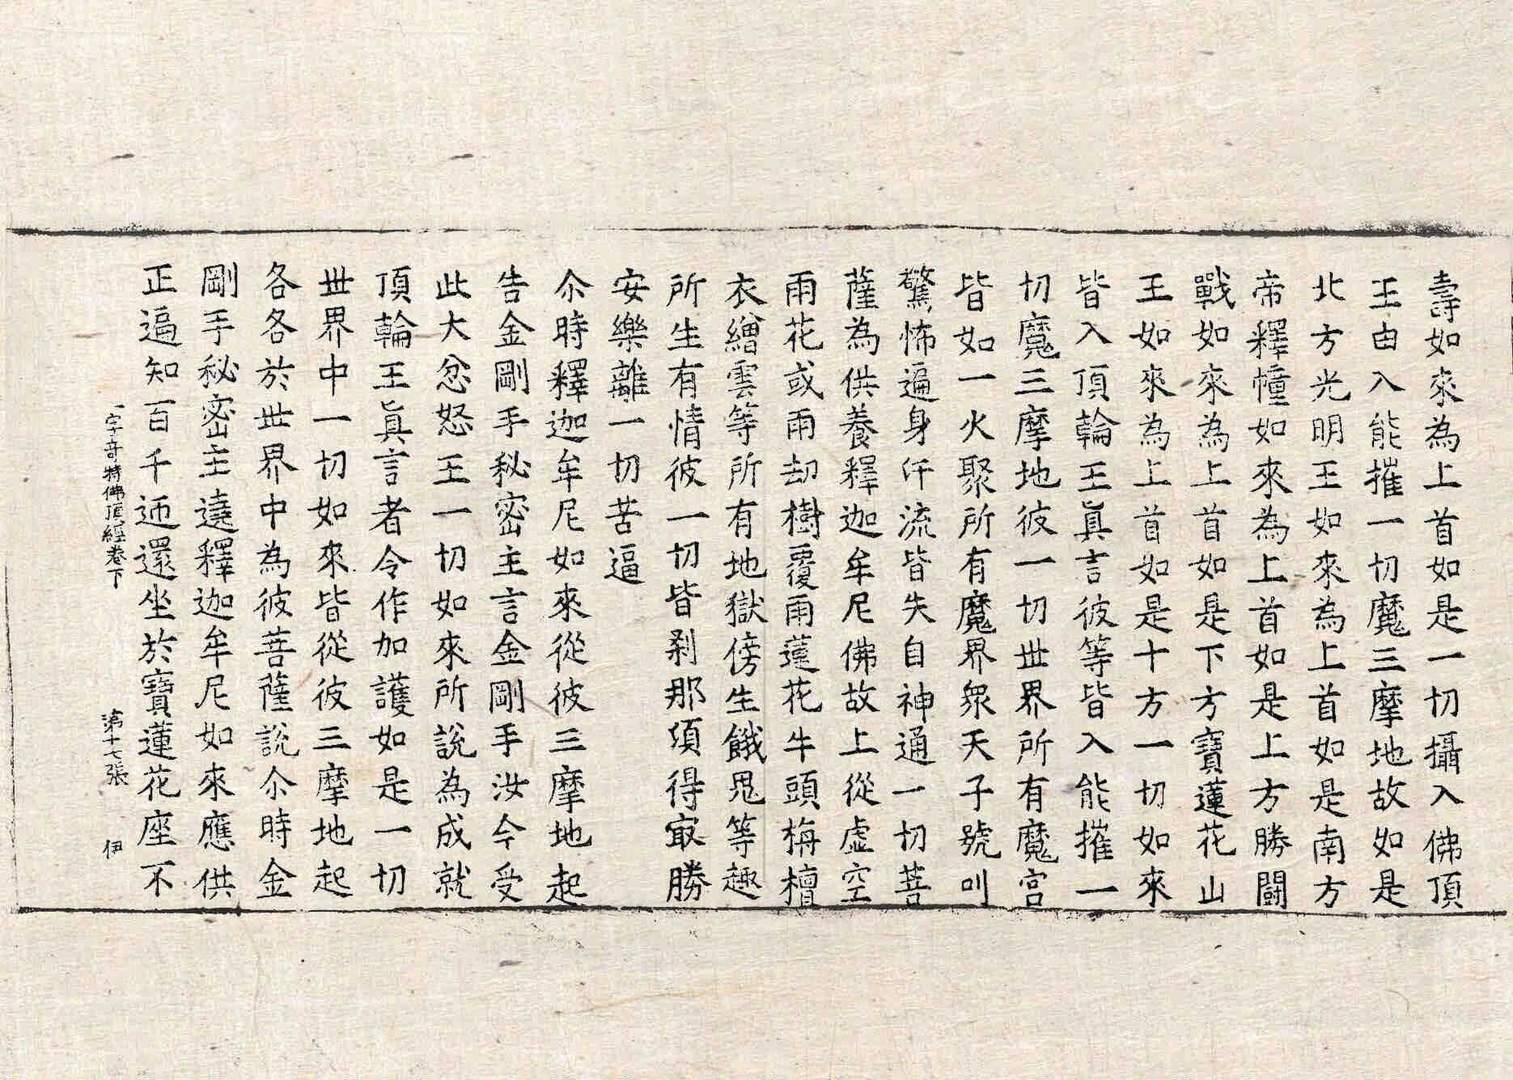 壽如來為上首如是一切攝入佛頂
王由入能摧一切魔三摩地故如是
北方光明王如來為上首如是南方
帝釋幢如來為上首如是上方勝鬪
戰如來為上首如是下方寶蓮花山
王如來為上首如是十方一切如來
皆入頂輪王眞言彼等皆入能摧一
切魔三摩地彼一切世界所有魔宮
皆如一火聚所有魔界衆天子號叫
驚怖遍身汗流皆失自神通一切菩
薩為供養釋迦牟尼佛故上從虛空
雨花或雨刧樹覆雨蓮花牛頭栴檀
衣繒雲等所有地獄傍生餓鬼等趣
所生有情彼一切皆剎那須得㝡勝
安樂離一切苦逼
尒時釋迦牟尼如來從彼三摩地起
告金剛手秘密主言金剛手汝今受
此大忿怒王一切如來所說為成就
頂輪王眞言者令作加護如是一切
世界中一切如來皆從彼三摩地起
各各於世界中為彼菩薩說尒時金
剛手秘密主遶釋迦牟尼如來應供
正遍知百千迊還坐於寶蓮花座不
一字竒特佛頂經卷下 第十七張 伊